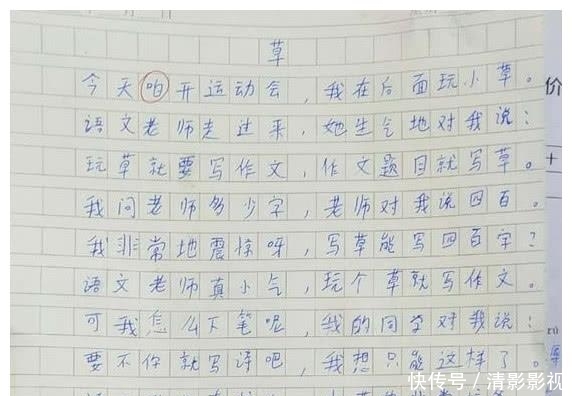 草
今天咱开运动会，我在后面玩小草。
语文老师走过来，她生气地对我说：
玩草就要写作文，作文题目就写草。
我问老师多少字，老师对我说四百。
我非常地震惊呀，写草能写四百字？
语文老师真小气，玩个草就写作文。
可我怎么下笔呢，我的同学对我说：
要不你就写诗吧，我想只能这样了。
价
+
快传号／清影影视